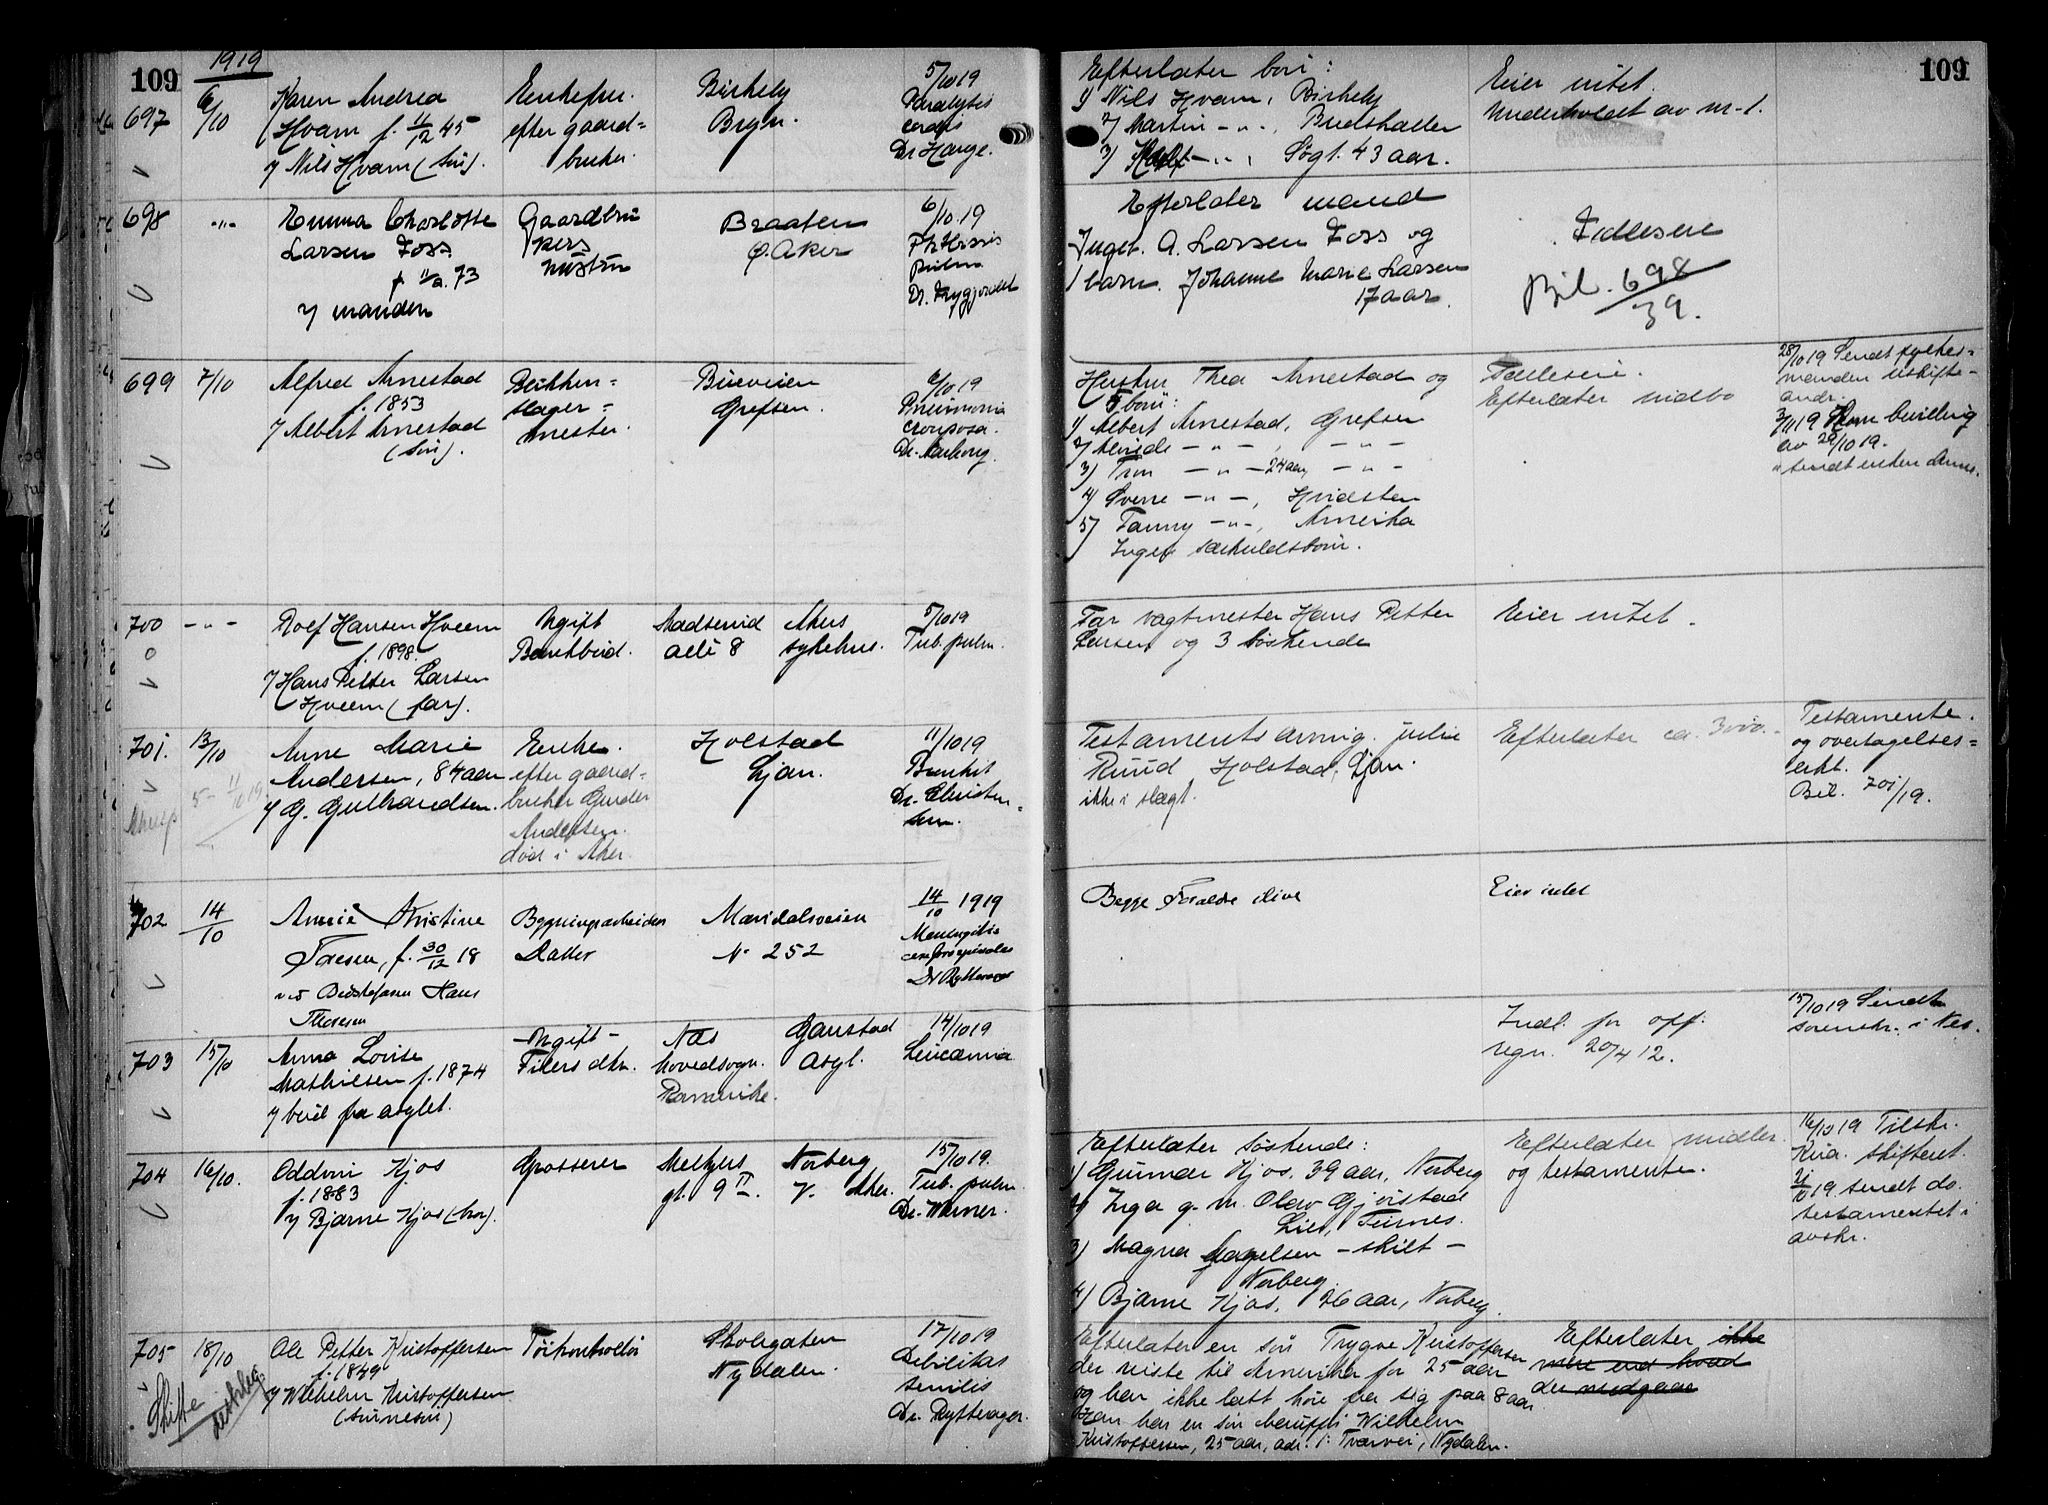 109
1919
697
6/10
Karen Andrea
Hvam f. 11/12 45
v/ Nils Hvam (søn).
Enkefru.
efter gaard=
bruker.
Birkely
Bryn.
5/10 19
Paralysis
cordis
Dr. Hauge.
698
-"-
Emma Charlotte
Larsen Foss
f. 11/2. 73
v/ manden
Gaardbru
kers
hustru
Braaten
Ø. Aker
6/10. 19
Phthisis
pulm.
699
7/10
Alfred Arnestad
f. 1853
v/ Albert Arnestad
(søn).
Blikken=
slager=
mester.
Bueveien
Grefsen.
6/10 19
Pneumonia
crouposa.
700
-"-
Rolf Hansen Hveem
f. 1898.
v/ Hans Petter Larsen
Hveem (far).
Ugift
Madserud
alle 8
Akers
sykehus.
5/10 19
Tub. pulm.
701.
13/10
Anne Marie
Andersen, 84 aar
v/ G. Gulbrandsen.
Enke.
efter gaard=
bruker Gunder
Andersen.
død i Aker.
Holstad
Ljan.
11/10 19
Bronkit
Dr. Christen=
sen.
702
14/10
Annie Kristine
Toresen, f. 30/12 18
ved Bedstefaren Hans
Thoresen
Bygningsarbeiders
Datter
Maridalsveien
No 252
14/10 1919
Meningitis
cerebrospinalis
Dr Rytterager
703
15/10
Anna Louise
Mathiesen f. 1874
v/ brev fra asylet.
Ugift
Nes
hovedsogn.
Romerike.
Gaustad
asyl.
14/10 19
704
16/10.
Oddvin Kjos
f. 1883
v/ Bjarne Kjos (bror).
Grosserer
Meltzers
gt. 9 II.
Norberg
V. Aker.
15/10 19.
Tub. pulm.
Dr. Warner.
705
18/10
Ole Petter Kristoffersen
f. 1849
v/ Wilhelm Kristoffersen
(sønnesøn)
Skifte
Tøikontrollør
Skolegaten
Nydalen.
17/10 19
Debilitas
senilis
Dr. Rytterager.
109
Efterlater børn:
1) Nils Hvam, Birkely
2) Martin -"-, Budstikker
3) -"-, Søgt. 43 aar.
Eier intet.
Underholdt av nr. 1.
Efterlater mand
Ingeb. A. Larsen Foss og
1 barn. Johanne Marie Larsen
17 aar.
Fælleseie
Bil. 698/39.
Hustru Thea Arnestad og
5 børn:
1) Albert Arnestad, Grefsen
2) Alvilde -"-, -"-
3) Tron -"- 24 aar, -"-
4) Sverre -"-, Hvidsten
5) Fanny -"-, Amerika
Ingen særkuldsbørn.
Fælleseie.
Efterlater uidbo
28/10 19 Sendt fylkes=
manden uskifte=
andr.
3/11 19 Kom bevilling
av 29/10 19.
Far vagtmester Hans Petter
Larsen og 3 søskende
Eier intet.
Testamentsarving. Julie
Ruud Holstad, Ljan.
ikke i slegt.
Efterlater ca. 3000.-
Testamente.
og overtagelses=
erkl.
Bil. 701/19.
Begge Foraldre ilive
Eier intet
Indl. for off.
regn. 20/4 12.
15/10 19 Sendt
sorenskr. i Nes.
Efterlater søskende:
1) Gunnar Kjos, 39 aar, Norberg
2) Inga g. m. Olav Gjvistad
3) Magna Magelsen - skilt -
Norberg.
4) Bjarne Kjos, 26 aar, Norberg.
Efterlater midler
og testamente.
16/10 19 Tilskr.
Kria. skifteret.
21/10 19 sendt do.
testamentet i
avskr.
Efterlater en søn Trygve Kristoffersen
der reiste til Amerika for 25 aar
og har ikke latt høre fra sig paa 8 aar.
Han har en søn herunder Wilhelm
Kristoffersen, 25 aar, adr.: Tværvei, Nydalen.
Efterlater ikke
mere end hvad
der medgaar